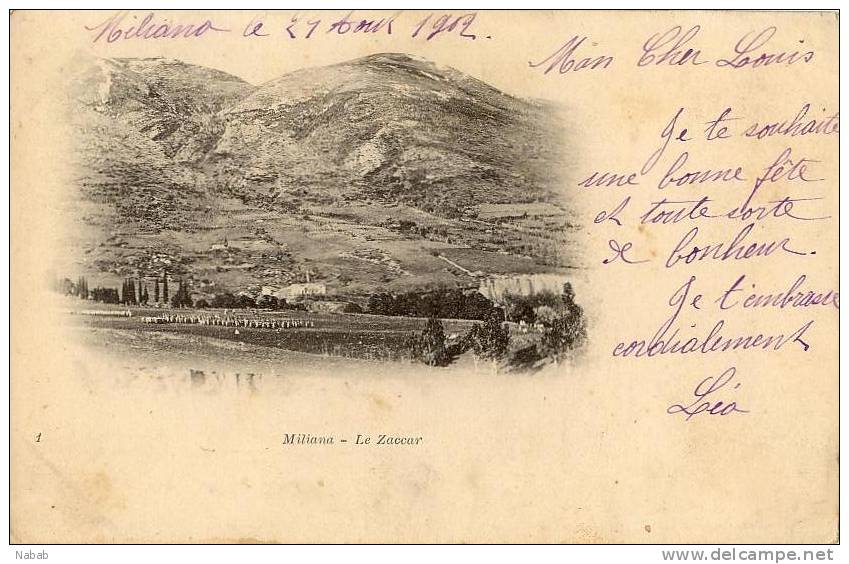 Miliana le 21 Aout 1902.
Mon Cher Louis
Je te souhaite
une bonne fête
et toute sorte
de bonheur.
Je t'embrasse
cordialement
Léo
1
Miliana - Le Zaccar
Nabab
http://www.delcampe.net